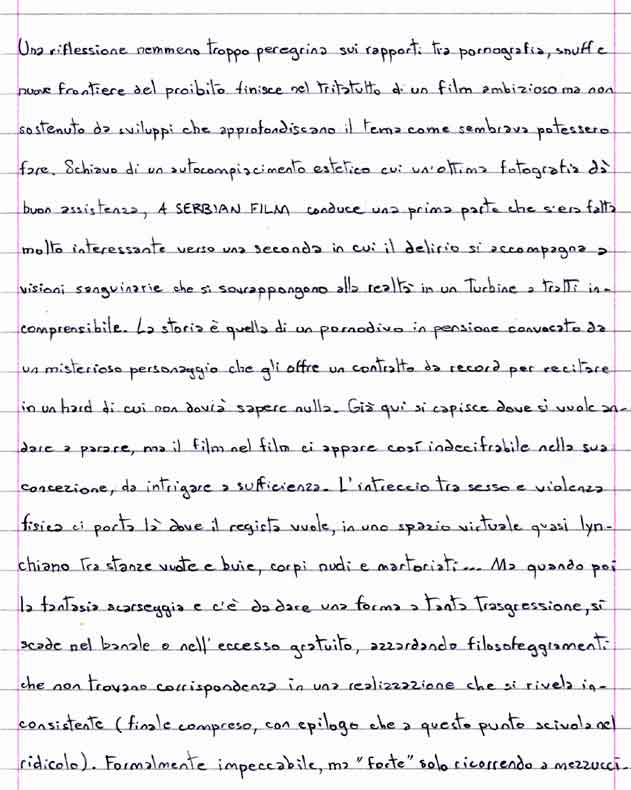 Una riflessione nemmeno troppo peregrina sui rapporti tra pornografia, snuff e
nuove frontiere del proibito finisce nel tritatutto di un film ambizioso ma non
sostenuto da sviluppi che approfondiscano il tema come sembrava potessero
fare. Schiavo di un autocompiacimento estetico cui un'ottima fotografia dà
buon assistenza, A SERBIAN FILM conduce una prima parte che s'era fatta
molto interessante verso una seconda in cui il delirio si accompagna a
visioni sanguinarie che si sovrappongono alla realtà in un turbine a tratti in-
comprensibile. La storia è quella di un pornodivo in pensione convocato da
un misterioso personaggio che gli offre un contratto da record per recitare
in un hard di cui non dovrà sapere nulla. Già qui si capisce dove si vuole an-
dare a parare, ma il film nel film ci appare così indecifrabile nella sua
concezione, da intrigare a sufficienza. L'intreccio tra sesso e violenza
fisica ci porta là dove il regista vuole, in uno spazio virtuale quasi lyn-
chiano tra stanze vuote e buie, corpi nudi e martoriati... Ma quando poi
la fantasia scarseggia e c'è da dare una forma a tanta trasgressione, si
scade nel banale o nell'eccesso gratuito, azzardando filosofeggiamenti
che non trovano corrispondenza in una realizzazione che si rivela in-
consistente (finale compreso, con epilogo che a questo punto scivola nel
ridicolo). Formalmente impeccabile, ma "forte" solo ricorrendo a mezzucci.